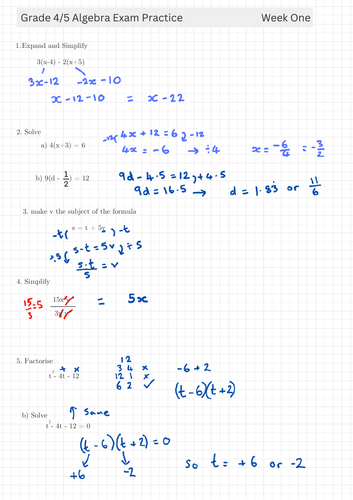 Grade 4/5 Algebra Exam Practice Week One
1.Expand and Simplify
3(x-4) - 2(x+5)
3x-12 -2x-10
x-12-10 = x-22
2. Solve
a) 4(x+3) = 6
-12 ( 4x + 12 = 6 ) -12
4x = -6 → ÷4 x = -6/4 = -3/2
b) 9(d - 1/2) = 12
9d - 4.5 = 12 ) + 4.5
9d = 16.5 → d = 1.83 or 11/6
3. make v the subject of the formula
s = t + 5v
-t ( ) -t
÷5 ( s-t = 5v ) ÷ 5
s-t/5 = v
4. Simplify
15/3 = 5 = 5x
5. Factorise
t² - 4t - 12
+ x
12
3 4 x
12 1 x
6 2 ✓
-6 + 2
(t-6)(t+2)
b) Solve ↑ same
t² - 4t - 12 = 0
(t-6)(t+2) = 0
+6 -2
so t = +6 or -2